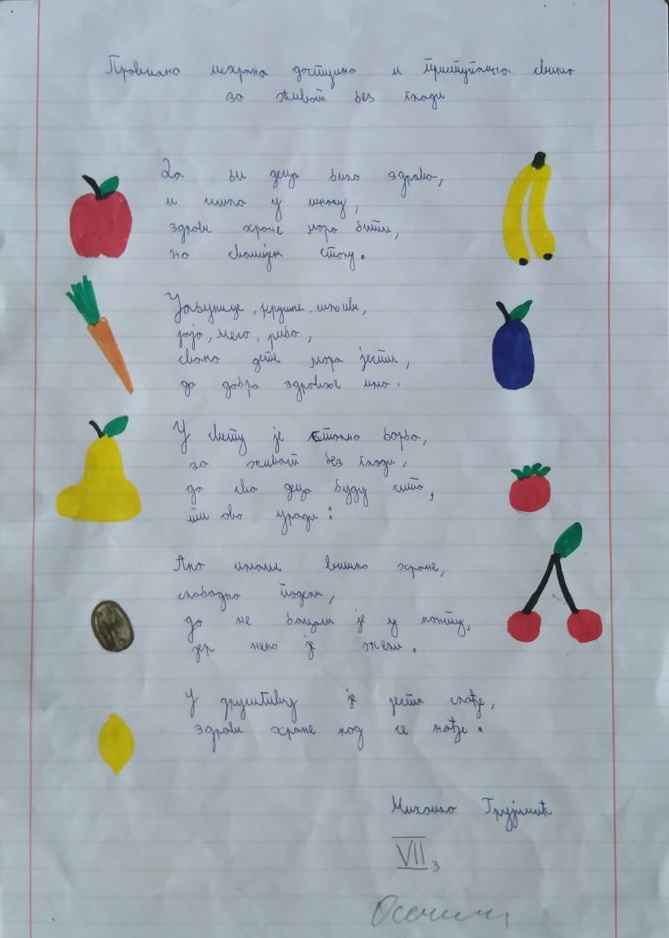 Правилна исхрана доступна и приступачна свима
за живот без глади
Да би деца била здрава,
и ишла у школу,
здраве хране мора бити,
на свачијем столу.
Јабучице, крушке, шљиве,
јаја, месо, риба,
свако дете мора јести,
да добра здравље има.
У свету је стална борба,
за живот без глади,
да сва деца буду сита,
ти ово уради:
Ако имаш вишка хране,
слободно подели,
да не бацаш је у канту,
јер неко је жели.
У друштву је јести слађе,
здраве хране код се нађе.
Михаило Грујичић
VII 3
Осечина